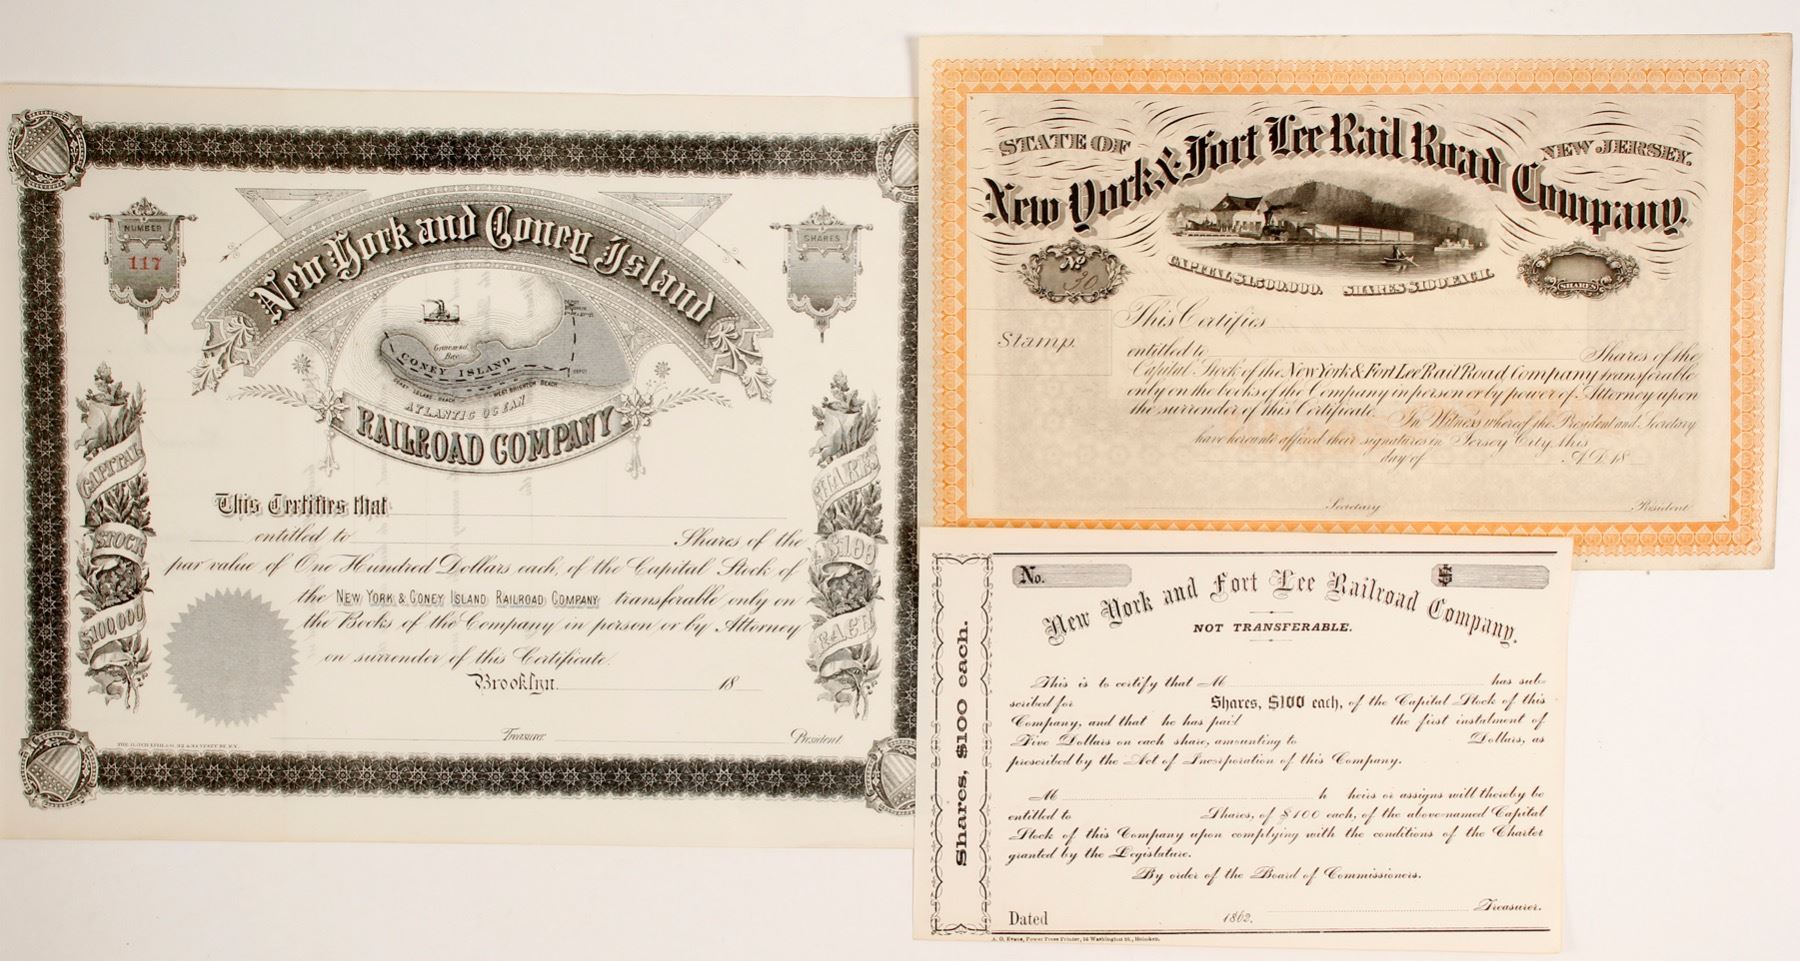 NUMBER
117
SHARES
New York and Coney Island
Gravesend
Bay
CONEY ISLAND
DEPOT
CONEY ISLAND BEACH
WEST BRIGHTON BEACH
ATLANTIC OCEAN
RAILROAD COMPANY
CAPITAL
STOCK
$100,000
SHARES
$100
EACH
This Certifies that
entitled to Shares of the
par value of One Hundred Dollars each, of the Capital Stock of
the NEW YORK & CONEY ISLAND RAILROAD COMPANY transferable only on
the Books of the Company in person or by Attorney
on surrender of this Certificate.
Brooklyn. 18
Treasurer. President.
STATE OF NEW JERSEY.
New York & Fort Lee Rail Road Company.
No 30
CAPITAL $1,500,000. SHARES $100 EACH.
SHARES
Stamp.
This Certifies
entitled to Shares of the
Capital Stock of the New York & Fort Lee Rail Road Company transferable
only on the books of the Company in person or by power of Attorney upon
the surrender of this Certificate. In Witness whereof the President and Secretary
have hereunto affixed their signatures in Jersey City, this
day of A.D. 18
Secretary President
Shares, $100 each.
No. $
New York and Fort Lee Railroad Company.
NOT TRANSFERABLE.
This is to certify that M has sub-
scribed for Shares, $100 each, of the Capital Stock of this
Company, and that he has paid the first instalment of
Five Dollars on each share, amounting to Dollars, as
prescribed by the Act of Incorporation of this Company.
M h heirs or assigns will thereby be
entitled to Shares, of $100 each, of the above-named Capital
Stock of this Company upon complying with the conditions of the Charter
granted by the Legislature.
By order of the Board of Commissioners.
Treasurer.
Dated 1862.
A. O. Evans, Power Press Printer, 16 Washington St., Hoboken.